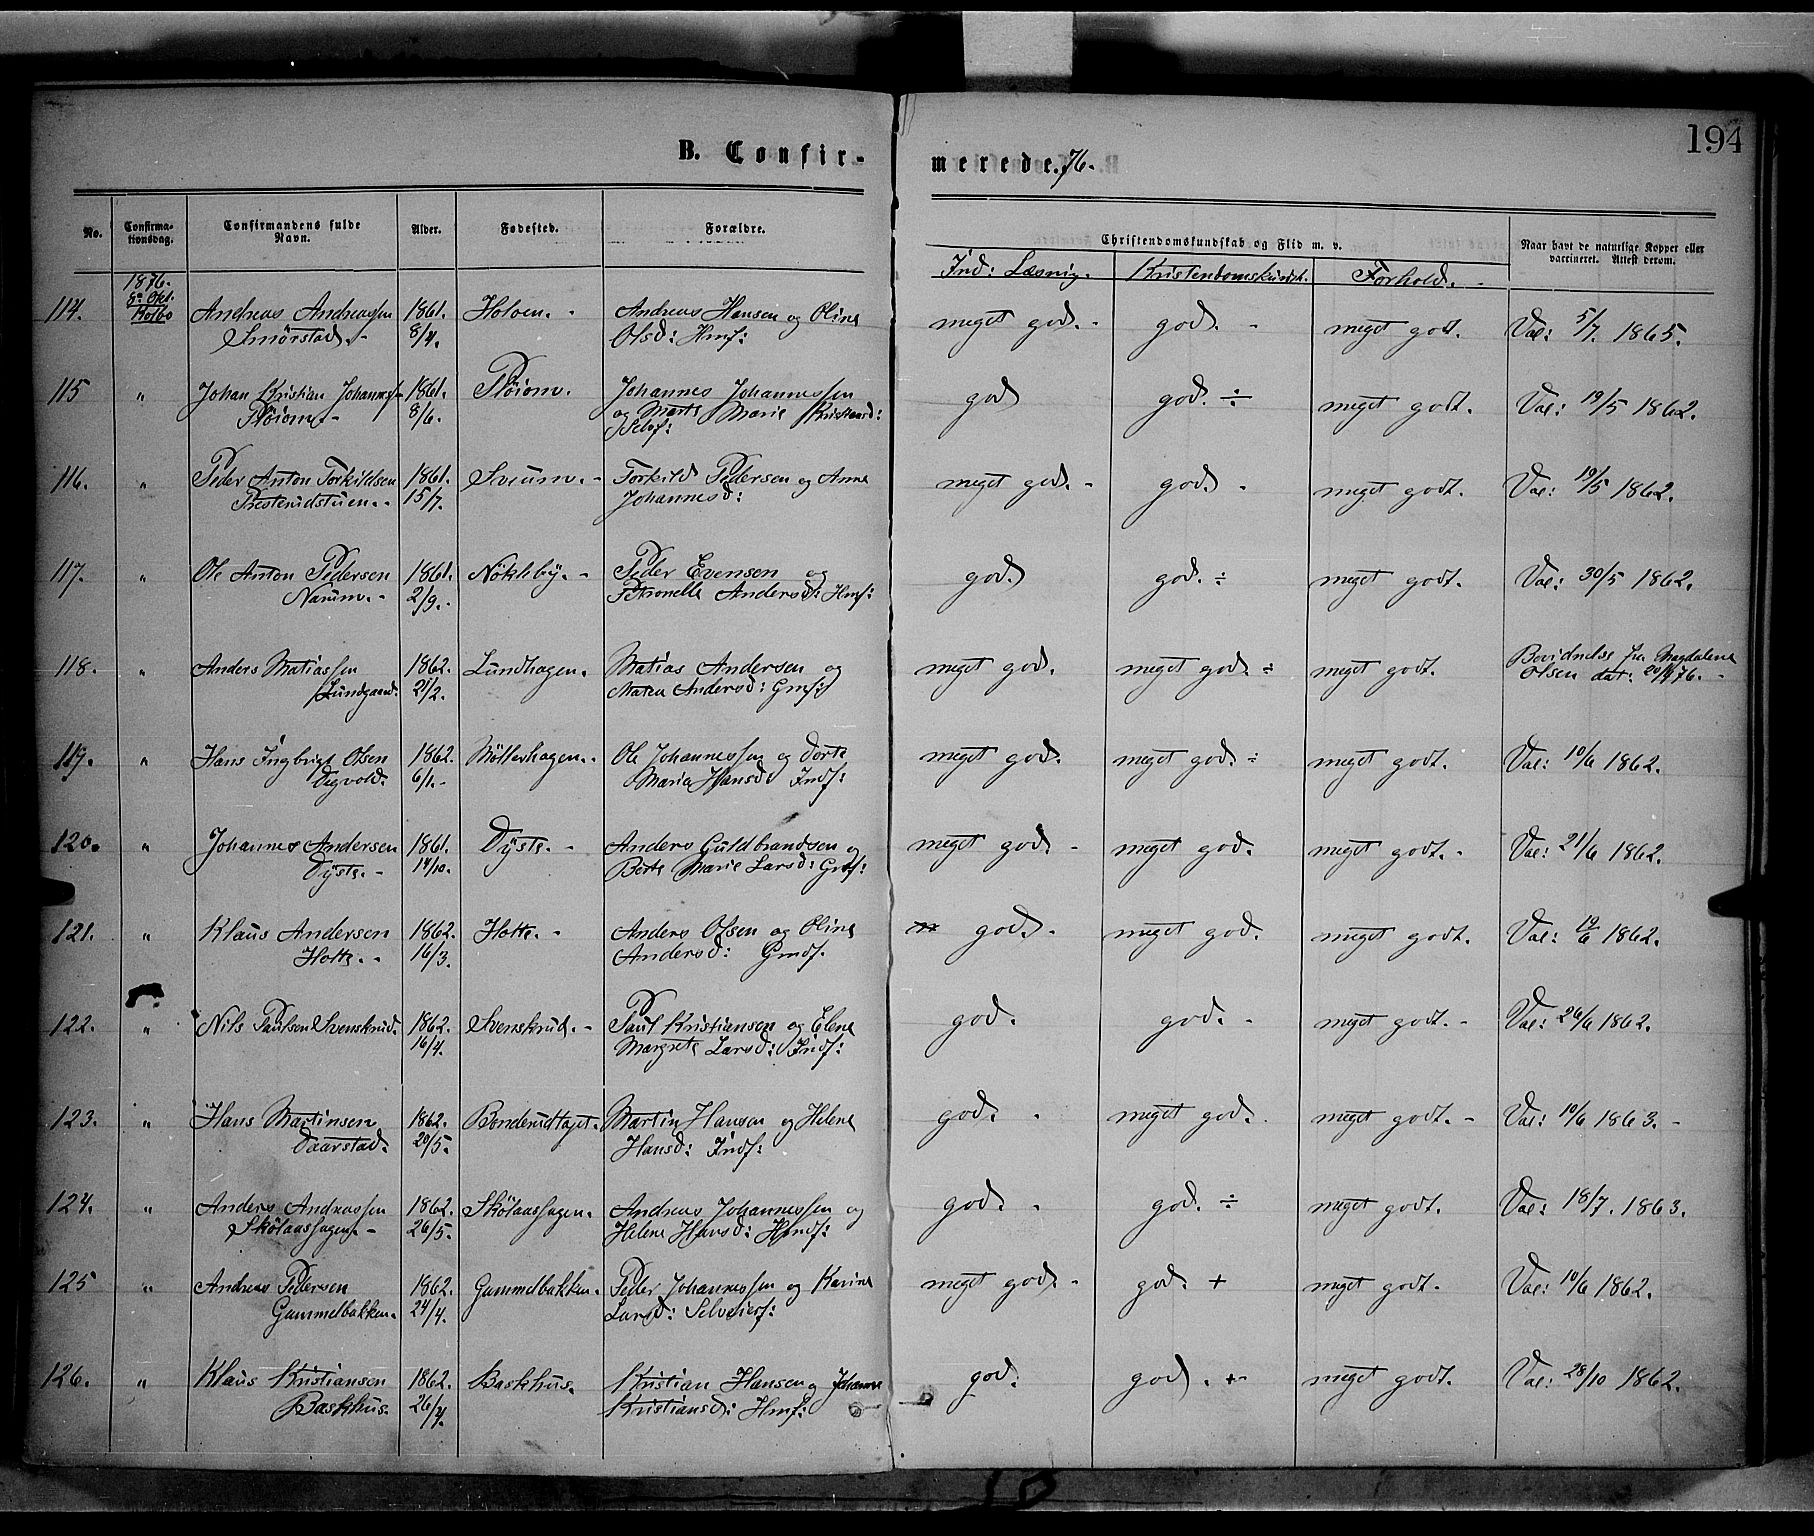 194
B. Confir-
merede. 76.
No.
Confirma-
tionsdag.
Confirmandens fulde
Navn.
Alder.
Fødested.
Forældre.
Christendomskundskab og Flid m. v.
Naar havt de naturlige Kopper eller
vaccineret. Attest derom.
Ind: Læsnig.
Kristendomskundsk.
Forhold.
1876.
8de Okt.
Kolbo
114. Andreas Andreassen 1861. Holven. Andreas Hansen og Oline meget god. god. meget godt. Vac: 5/7. 1865.
Smørstad. 8/4. Olsd: Hmf:
115 " Johan Kristian Johannesf 1861. Johannes Johannessen god god. ÷ meget godt. Vac: 19/5 1862.
8/6. og Marte Marie Kristiansd:
Selvf:
116. " Peder Anton Torkildsen 1861. Sveum. Torkild Pedersen og Anne meget god. god meget godt. Vac: 19/5 1862.
Presterudstuen. 15/7. Johannesd:
117. " Ole Anton Pedersen 1861. Nøkleby. Peder Evensen og god. god. ÷ meget godt. Vac: 30/5 1862.
Narum. 2/9. Petronelle Andersd: Hmf:
118. " Anders Matiassen 1862. Lundhagen. Matias Andersen og meget god. meget god. ÷ meget godt. Bevidnelse fra Magdalene
Lundgaard. 21/2. Maren Andersd: Gmf: Olsen dat: 76.
119. " Hans Ingbrigt Olsen 1862. Møllerhagen. Ole Johannessen og Dorte meget god. meget god. ÷ meget godt. Vac: 10/6 1862.
6/1. Marie Hansd: Indf:
120. " Johannes Andersen 1861. Dyste. Anders Guldbrandsen og meget god. meget god. meget godt. Vac: 21/6 1862.
Dyste. 14/10. Berte Marie Larsd:
121. " Klaus Andersen 1862. Hotte. Anders Olsen og Oline god. meget god. meget godt. Vac: 19/6 1862.
Hotte. 16/3. Andersd: Gmdf.
122. " Nils Paulsen Svenskrud. 1862. Svenskrud. Paul Kristiansen og Elene god. god. meget godt. Vac: 26/6 1862.
16/4. Margrete Larsd: Indf:
123. " Hans Martinsen 1862. Bonderudtaget. Martin Hansen og Helene god. meget god. meget godt. Vac: 10/6 1863.
Daarstad. 29/5. Hansd: Indf:
124. " Anders Andreassen 1862. Skölaashagen. Andreas Johannessen og god. god. ÷ meget godt. Vac: 18/7. 1863.
Skölaashagen. 26/5. Helene Hansd: Hmdf:
125 " Andreas Pedersen 1862. Gammelbakken. Peder Johannessen og Karine meget god. god. + meget godt. Vac: 10/6 1862.
Gammelbakken. 24/4. Larsd: Selveierf:
126. " Klaus Kristiansen 1862. Baskhus. Kristian Hansen og Johanne god. god. + meget godt. Vac: 28/10 1862.
Baskhus. 26/4. Kristiansd: Hmf: